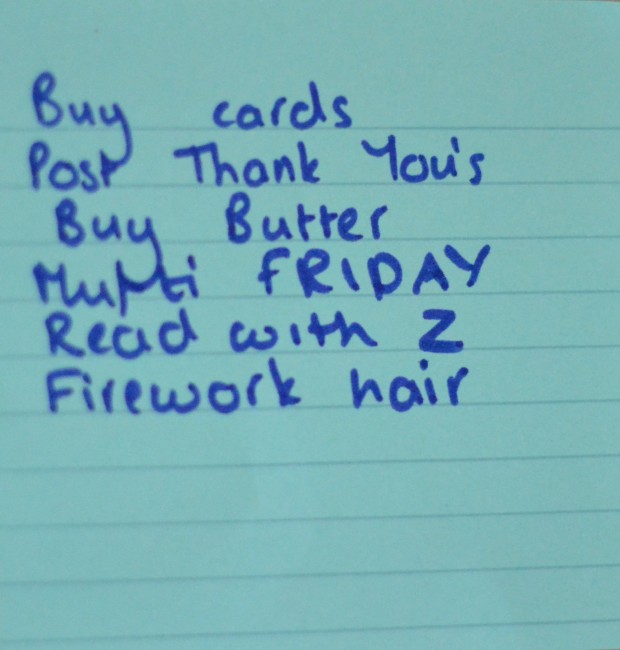 Buy cards
Post Thank You's
Buy Butter
Mufti FRIDAY
Read with Z
Firework hair